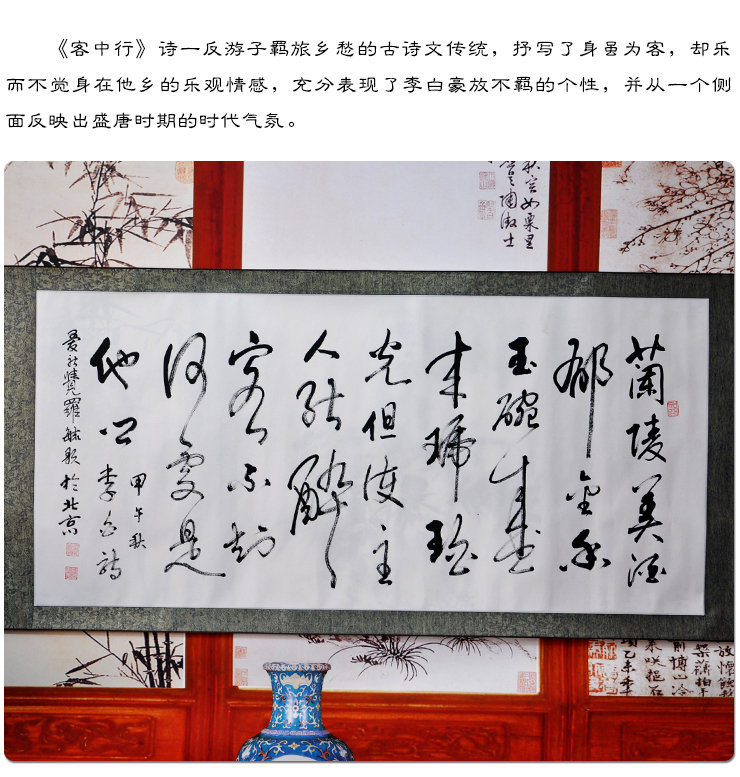 《客中行》诗一反游子羁旅乡愁的古诗文传统，抒写了身虽为客，却乐
而不觉身在他乡的乐观情感，充分表现了李白豪放不羁的个性，并从一个侧
面反映出盛唐时期的时代气氛。
蘭陵美酒
郁金香
玉碗盛
来琥珀
光但使主
人能醉
客不知
何处是
他乡
李白詩
甲午秋
愛新覺羅毓 於北京